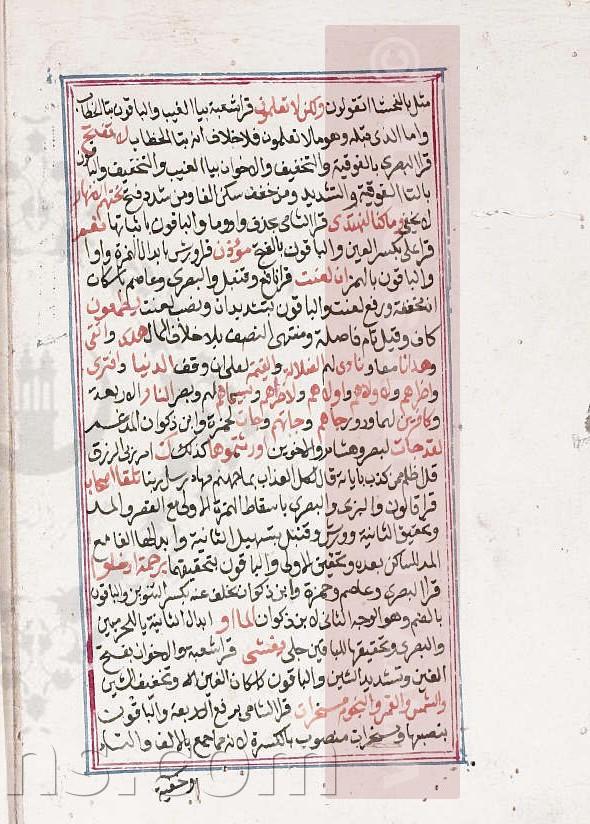 مثل بالفحشا اتقولون ولكن لا تعلمون قرا شعبة بيا الغيب والباقون بتا الخطاب
واما الذى قبله وهو ما لا تعلمون فلا خلاف انه بتا الخطاب لا تفتح
قرا البصرى بالفوقية والتخفيف والاخوان بيا الغيب والتخفيف والباقون
بالتا الفوقية والتشديد ومن خفف سكن الفا ومن شدد فتح تحتهم الانهار
لا يخفى وما كنا لنهتدى قرا الشامى بحذف واو وما والباقون باثباتها نعم
قرا على بكسر العين والباقون بالفتح مؤذن قرا ورش بابدال الهمزة واوا
والباقون بالهمز ان لعنت قرا نافع وقنبل والبصرى وعاصم باسكان
ان مخففة ورفع لعنت والباقون بتشديد ان ونصب لعنت يطمعون
كاف وقيل تام فاصلة ومنتهى النصف بلا خلاف الممال هدى واتقى
وهدانا معا ونادى لهم الضلالة والقيمة لعلى ان وقف الدنيا وافترى
واخراهم ولاولاهم واولاهم ولاخراهم وبسيماهم لهم وبصر النار الاربعة
وكافرين لهما ودور جاهم وجاتهم وجات لحمزة وابن ذكوان المدغم
لقد جات لبصر وهشام والاخوين اورثتموها كذلك ك امر ربى الرزق
قل اظلم ممن كذب باياته قال لكل العذاب بما جهنم مهاد رسل ربنا تلقا اصحاب
قرا قالون والبزى والبصرى باسقاط الهمزة الاولى مع القصر والمد
وتحقيق الثانية وورش وقنبل بتسهيل الثانية وابدالها الفا مع
المد للساكن بعده وتحقيق الاولى والباقون لتحقيقهما برحمة ادخلوا
قرا البصرى وعاصم وحمزة وابن ذكوان بخلف عنه بكسر التنوين والباقون
بالضم وهو الوجه الثانى لابن ذكوان الما او ابدال الثانية يا للحرميين
والبصرى وتحقيقها للباقين جلى يغشى قرا شعبة والاخوان بفتح
الغين وتشديد الشين والباقون باسكان الغين وتخفيف الشين
والشمس والقمر والنجوم مسخرات قرا الشامى برفع الاربعة والباقون
بنصبها ومسخرات منصوب بالكسرة لانه مما جمع بالالف والتا
وخفية
ns.com